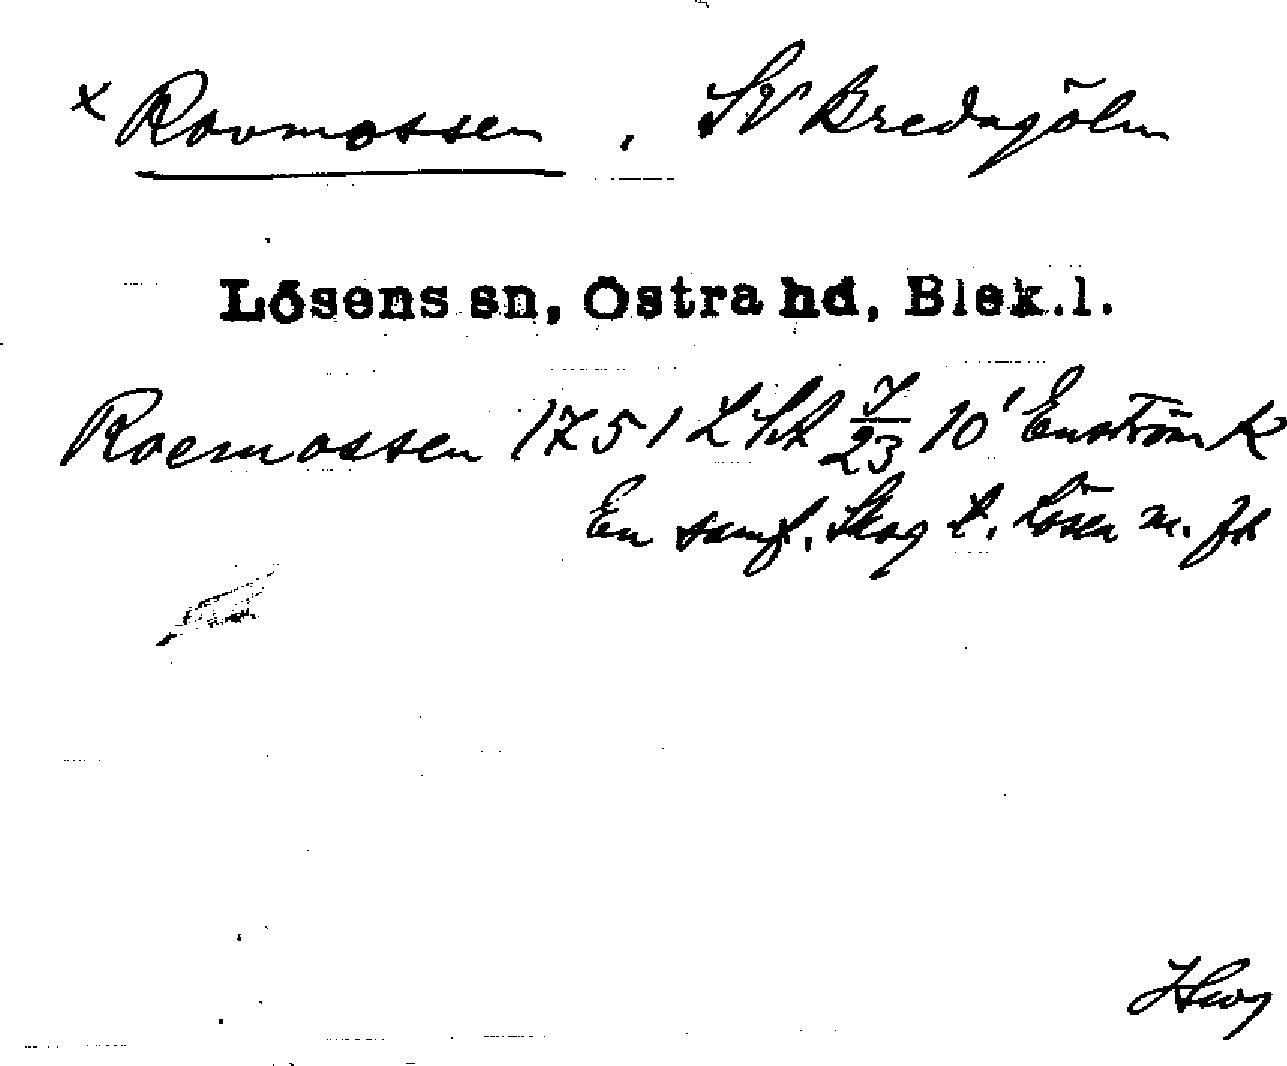 x Rovmossen, SV Bredagöln
Lösens sn, Östra hd, Blek.l.
Roemossen 1751 LSA J/23 10' Enström K
En samf. Skog t. Lösen m. fl